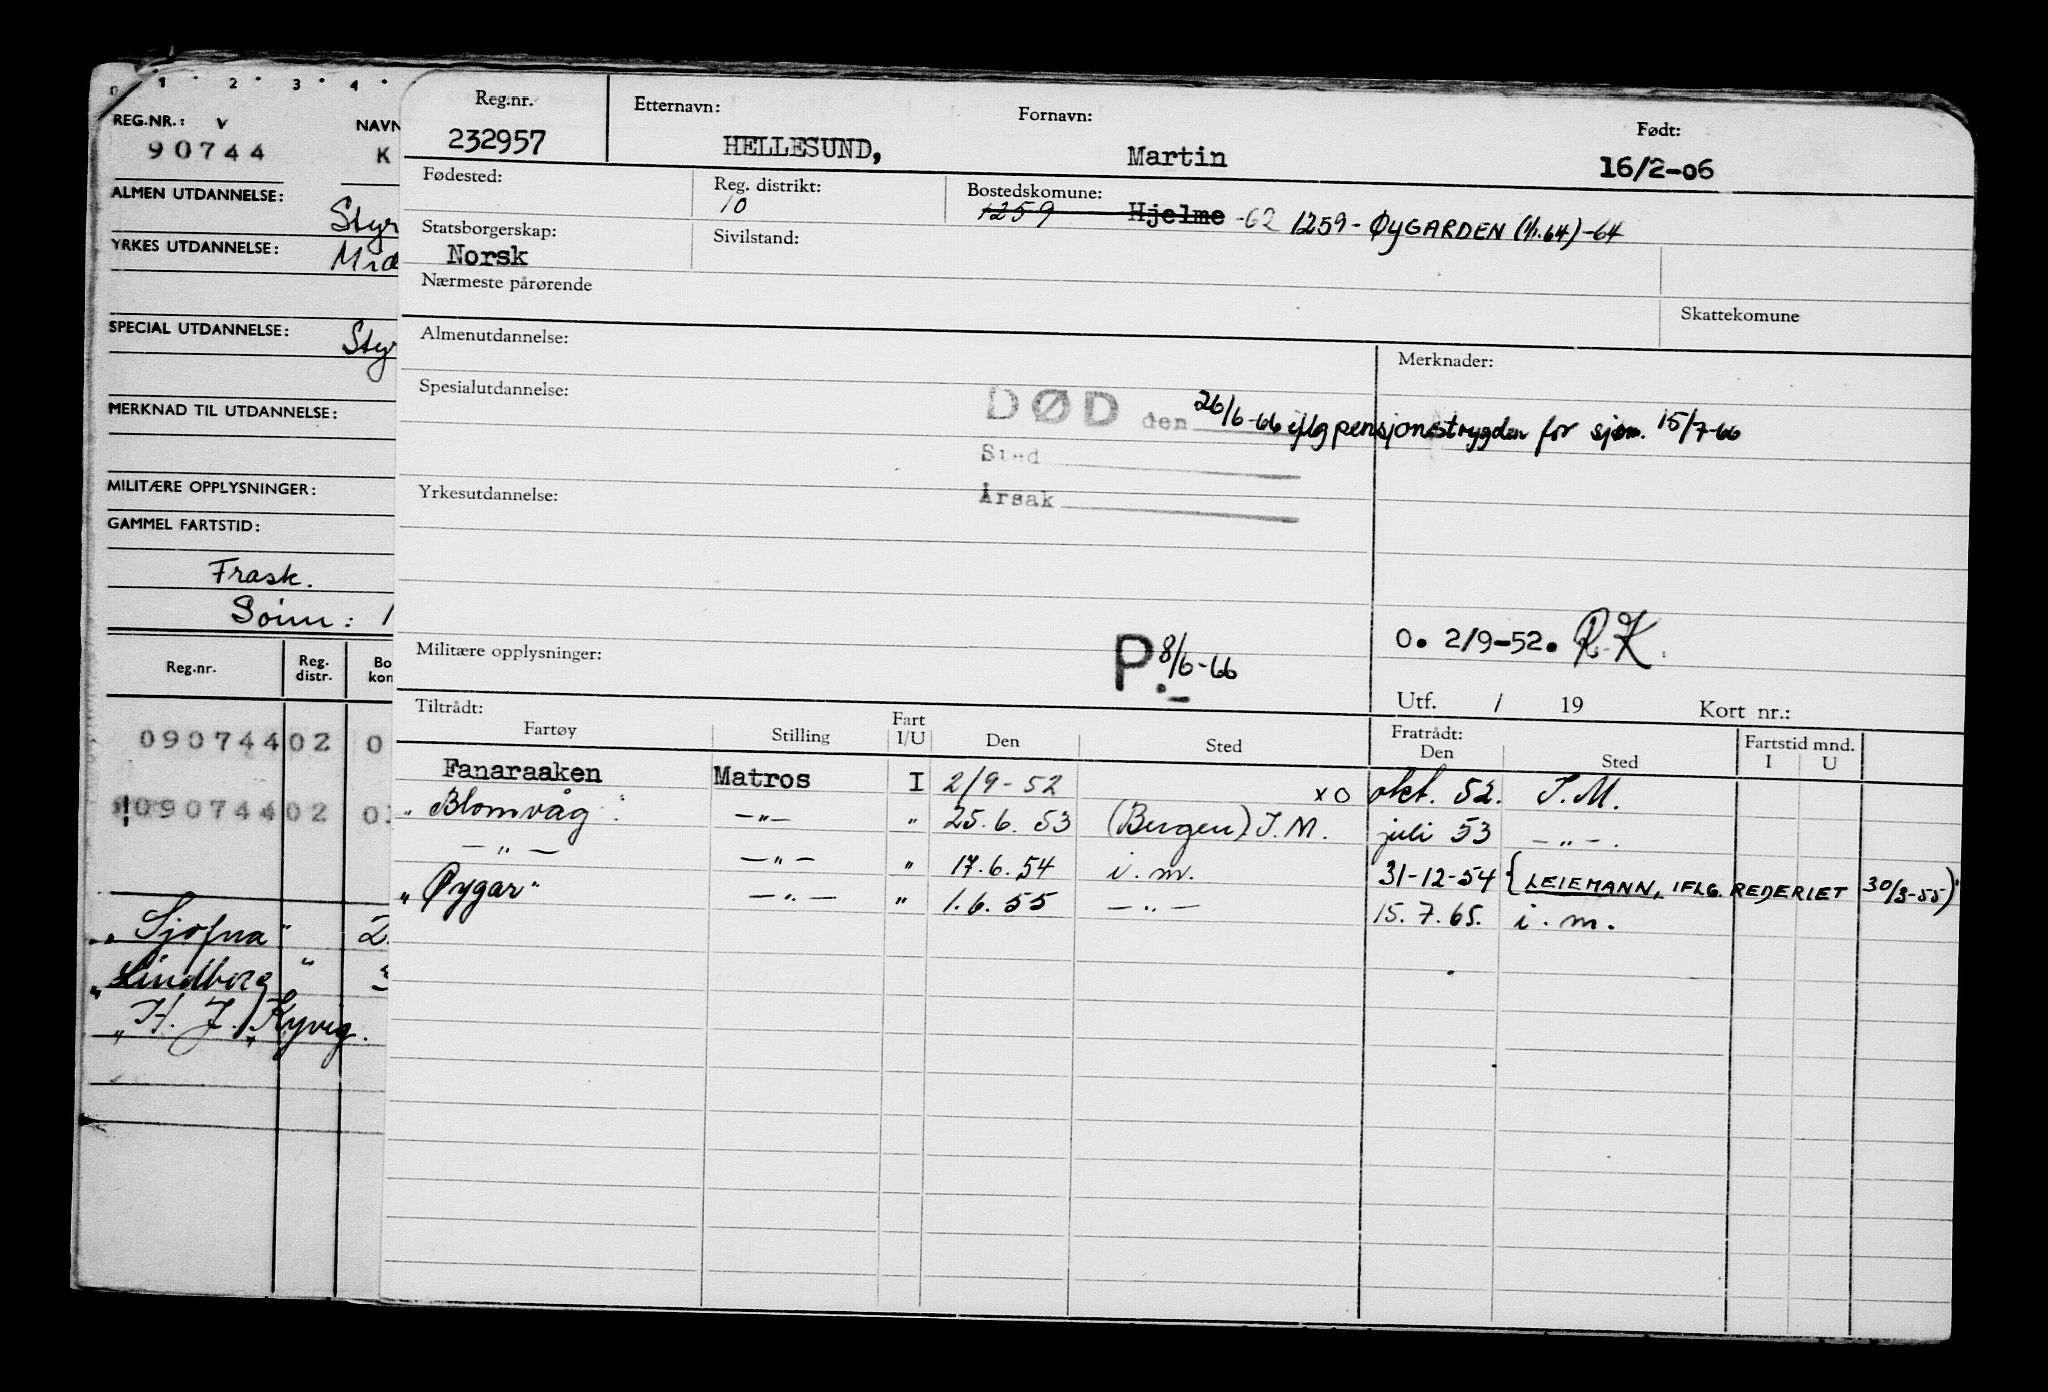 0 1 2 3 4
REG.NR.: V
NAVN
90744
K
ALMEN UTDANNELSE:
Styr
YRKES UTDANNELSE:
SPECIAL UTDANNELSE:
Styr
MERKNAD TIL UTDANNELSE:
MILITÆRE OPPLYSNINGER:
GAMMEL FARTSTID:
Frask.
Soim: 1
Reg.nr. Reg. distr. Bo kon
09074402 0
09074402 0
"Sjofna"
"Lindborg"
"H. J. Kyvig.
Reg.nr. Etternavn: Fornavn: Født:
232957 HELLESUND, Martin 16/2-06
Fødested: Reg. distrikt: Bostedskomune:
10 1259 Hjelme -62 1259- ØYGARDEN (1/1.64)-64
Statsborgerskap: Sivilstand:
Norsk
Nærmeste pårørende
Skattekomune
Almenutdannelse: Merknader:
Spesialutdannelse:
DØD den 26/6-66 iflg pensjonstrygden for sjøm. 15/7-66
Sted
Yrkesutdannelse: Årsak
O. 2/9-52. R.K.
Militære opplysninger: P. 8/6-66
Utf. / 19 Kort nr.:
Tiltrådt: Fratrådt: Fartstid mnd.
Fartøy Stilling Fart I/U Den Sted Den Sted I U
Fanaraaken Matros I 2/9-52 xo okt. 52. I.M.
"Blomvåg" —"— " 25.6.53 (Bergen) I.M. juli 53 —"—.
—"— —"— " 17.6.54 i.m. 31-12-54 {LEIEMANN, IFLG. REDERIET 30/3-55)
"Øygar" —"— " 1.6.55 —"— 15.7.65. i.m.